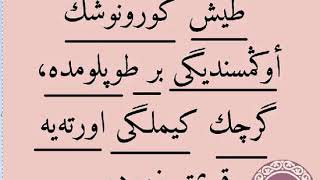 طیش گورونوشڭ
أوڭمسندیگی بر طوپلومده،
گرچك كیملگی اورته‌یه